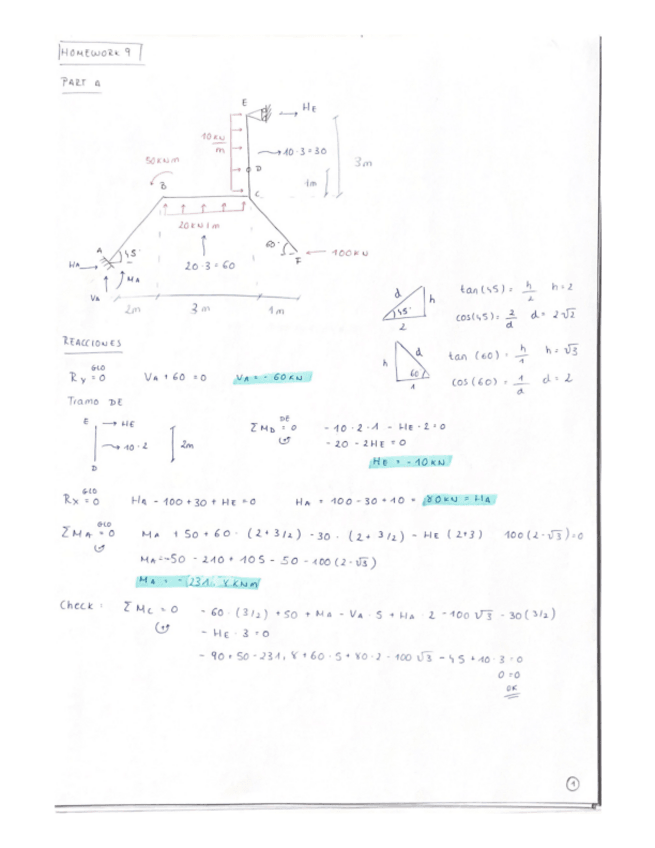 HOMEWORK 9
PART a
E
HE
10 KN
m
10·3=30
3m
50KNm
D
B
1m
C
20KN/m
A
45°
60°
F
100KN
HA
MA
20·3=60
VA
2m
3m
1m
d
h
45°
2
tan(45) = h/2 h=2
cos(45) = 2/d d=2√2
h
d
60
1
tan (60) = h/1 h=√3
cos(60) = 1/d d=2
REACCIONES
Ry = 0 GLO VA+60=0 VA=-60KN
Tramo DE
E
HE
10·2
2m
D
ΣMD = 0 DE -10·2·1 - HE·2=0
-20-2HE=0
HE = -10KN
Rx = 0 GLO HA-100+30+HE=0 HA = 100-30+10 = 80KN = HA
ΣMA = 0 GLO MA +50+60·(2+3/2) -30·(2+3/2) - HE(2+3) 100(2-√3)=0
MA=-50-210+105-50-100(2-√3)
MA = -231,8KNm
Check: ΣMC = 0 -60·(3/2)+50+MA-VA·5+HA·2-100√3-30(3/2)
-HE·3=0
-90+50-231,8+60·5+80·2-100√3-45+10·3=0
0=0
OK
1